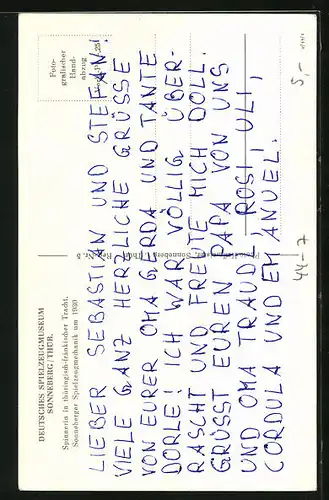 DEUTSCHES SPIELZEUGMUSEUM
SONNEBERG/THÜR.
Spinnerin in thüringisch-fränkischer Tracht.
Sonneberger Spielzeugmechanik um 1930
Foto-
grafischer
Hand-
abzug
LIEBER SEBASTIAN UND STEFAN!
VIELE GANZ HERZLICHE GRÜSSE
VON EURER OMA GERDA UND TANTE
DORLE! ICH WAR VÖLLIG ÜBER-
RASCHT UND FREUTE MICH DOLL.
GRÜSST EUREN PAPA VON UNS
UND OMA TRAUDL, ROSI ULI,
CORDULA UND EMANUEL!
5,-
44-7